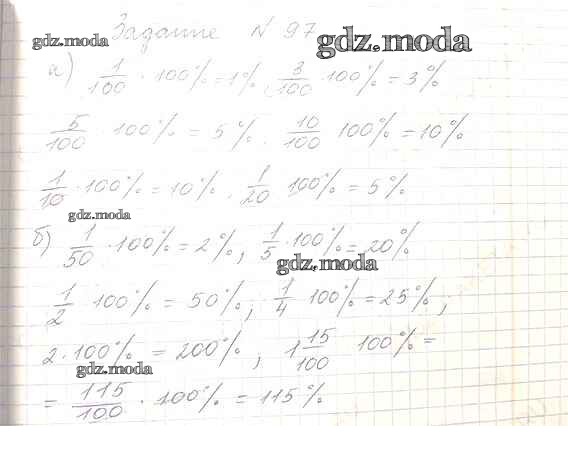 Задание № 97
gdz.moda gdz.moda
а) 1/100 · 100% = 1%. 3/100 · 100% = 3%
5/100 · 100% = 5%. 10/100 100% = 10%
1/10 · 100% = 10%. 1/20 100% = 5%
gdz.moda
б) 1/50 · 100% = 2%, 1/5 · 100% = 20%
gdz.moda
1/2 100% = 50%, 1/4 100% = 25%;
2 · 100% = 200%, 1 15/100 100% =
gdz.moda
= 115/100 · 100% = 115%